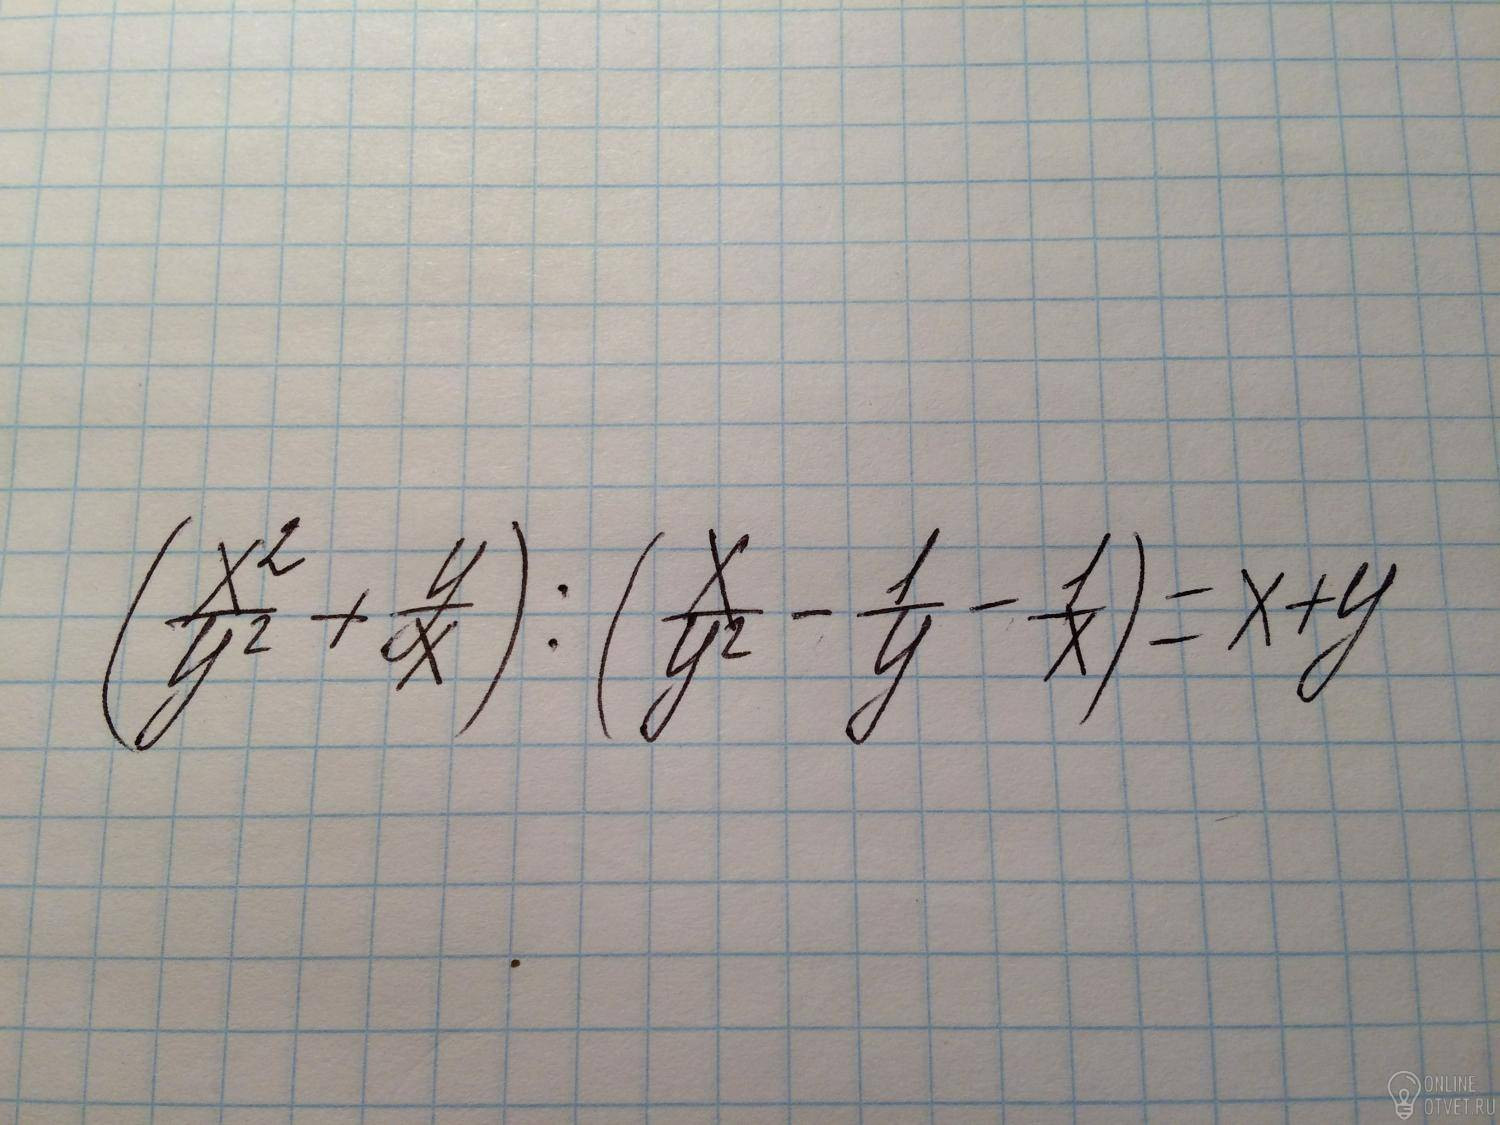 (x²/y² + y/x) : (x/y² - 1/y - 1/x) = x+y
ONLINE
OTVET.RU